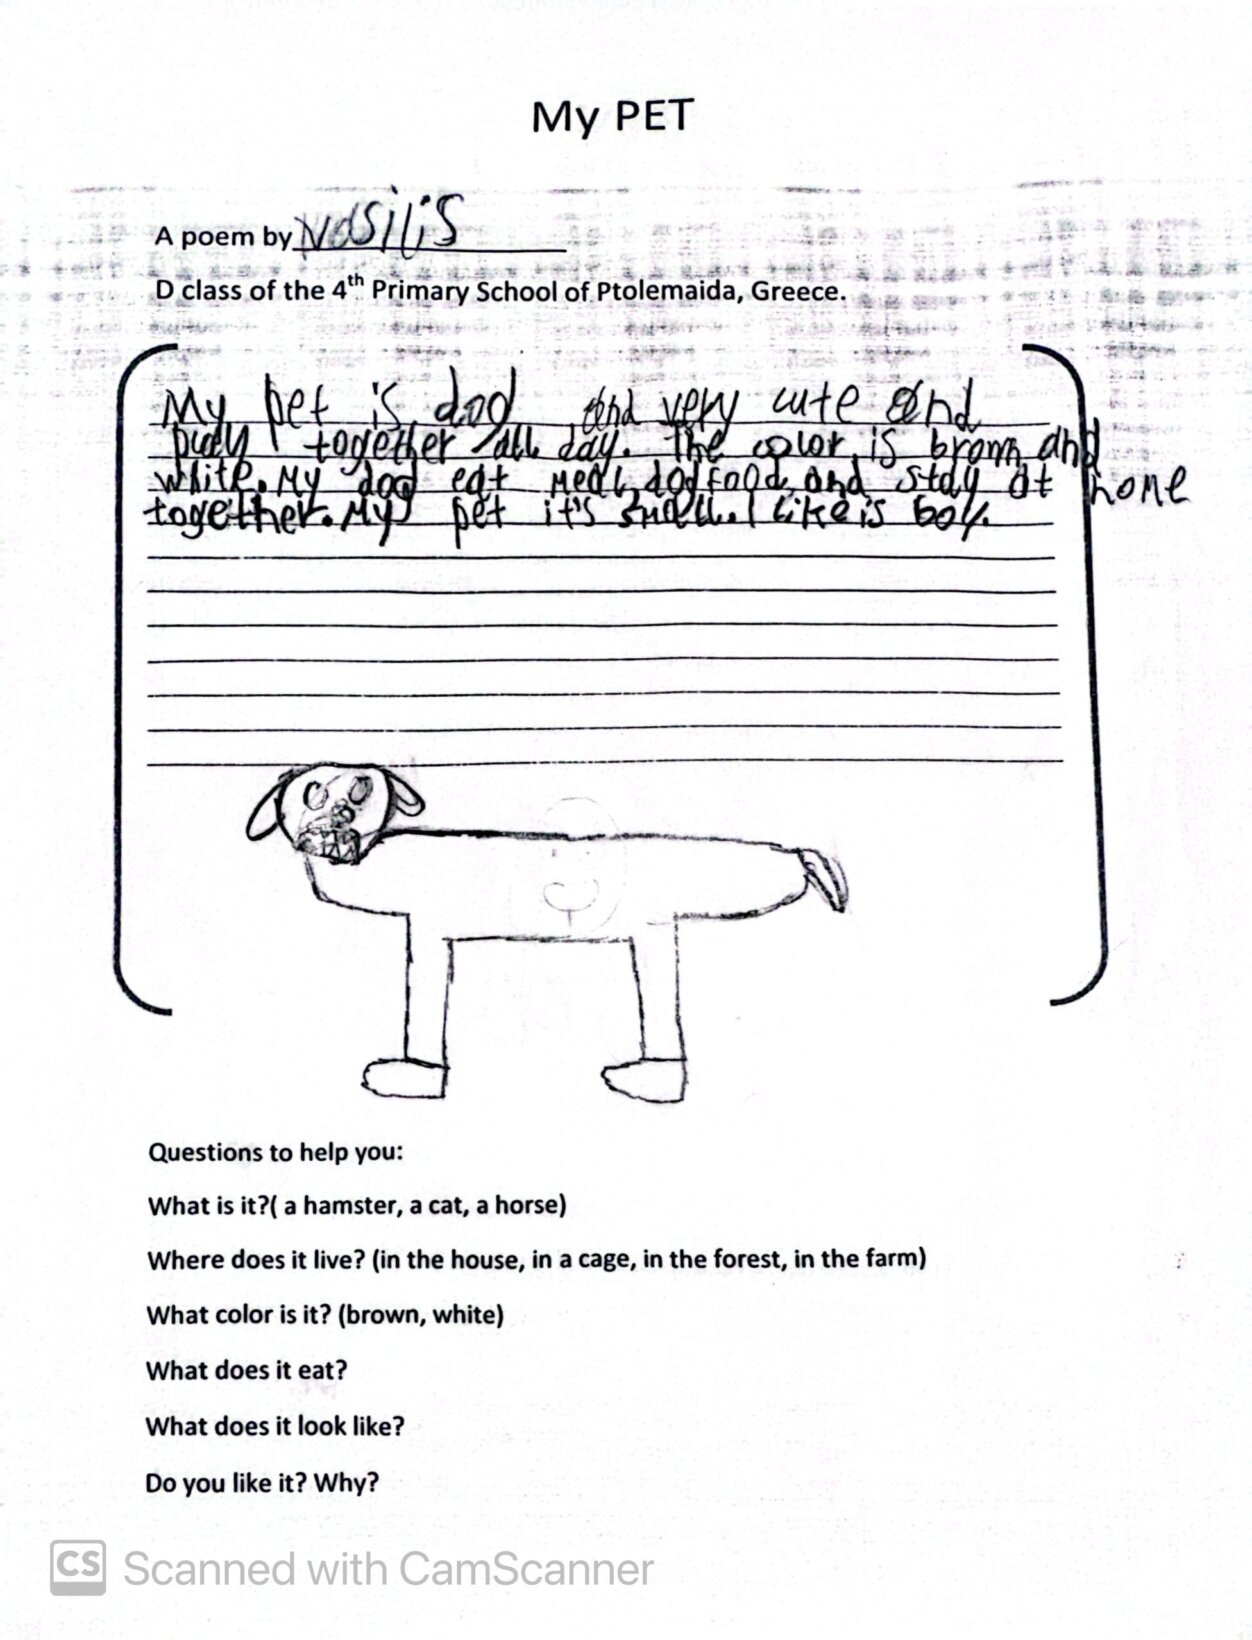 My PET
A poem by Vasilis
D class of the 4th Primary School of Ptolemaida, Greece.
My pet is dog and very cute and
together all day. The color is brown and
white. My dog eat meal, dogfood, and stay at home
together. My pet it's small. I like is boy.
Questions to help you:
What is it?( a hamster, a cat, a horse)
Where does it live? (in the house, in a cage, in the forest, in the farm)
What color is it? (brown, white)
What does it eat?
What does it look like?
Do you like it? Why?
CS Scanned with CamScanner